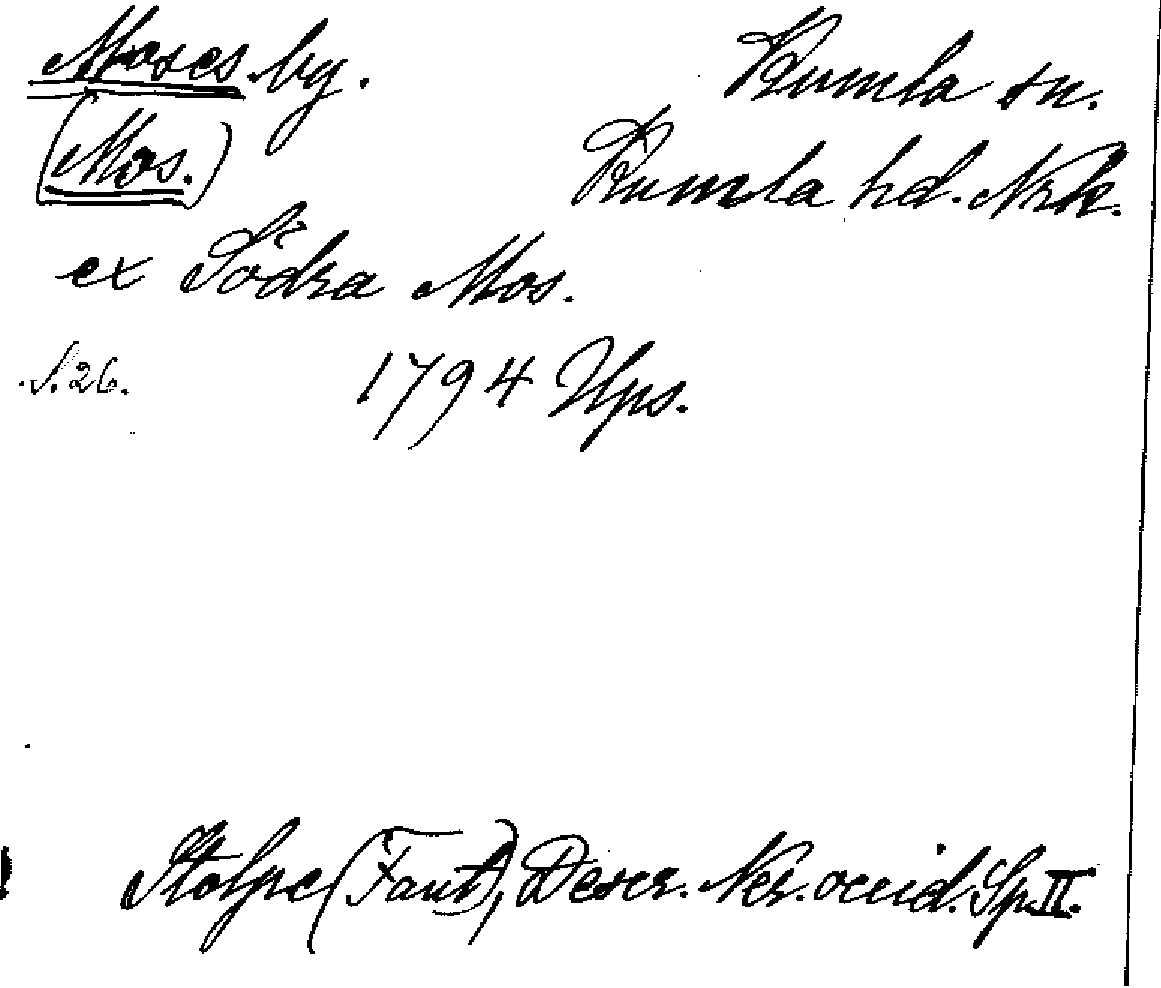 Moses by.
Kumla sn.
(Mos.)
Kumla hd. Nrk.
ex Södra Mos.
S. 26.
1794 Ups.
Stolpe (Fant), Descr. Ner. occid. Sp. II.